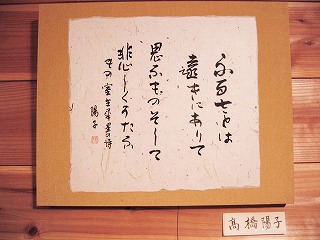 ふるさとは
遠きにありて
思ふものそして
悲しくうたふ
もの 室生犀星の詩
陽子
高橋陽子